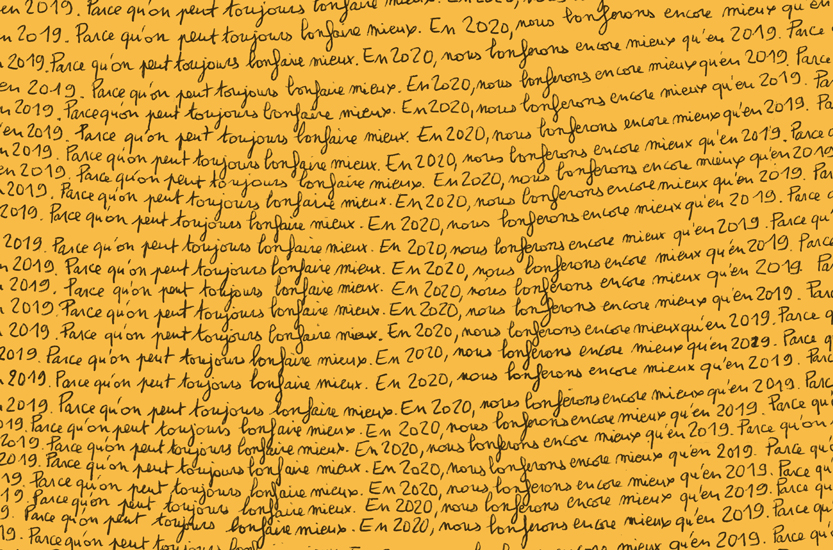 en 2019. Parce qu'on peut toujours bonfaire mieux. En 2020, nous bonferons encore mieux qu'en
en 2019. Parce qu'on peut toujours bonfaire mieux. En 2020, nous bonferons encore mieux qu'en 2019. Parce
2019. Parce qu'on peut toujours bonfaire mieux. En 2020, nous bonferons encore mieux qu'en 2019. Parce
en 2019. Parce qu'on peut toujours bonfaire mieux. En 2020, nous bonferons encore mieux qu'en 2019. Pa
2019. Parce qu'on peut toujours bonfaire mieux. En 2020, nous bonferons encore mieux qu'en 2019. Pa
'en 2019. Parce qu'on peut toujours bonfaire mieux. En 2020, nous bonferons encore mieux qu'en 2019. Pa
en 2019. Parce qu'on peut toujours bonfaire mieux. En 2020, nous bonferons encore mieux qu'en 2019. Parce
en 2019. Parce qu'on peut toujours bonfaire mieux. En 2020, nous bonferons encore mieux qu'en 2019
2019. Parce qu'on peut toujours bonfaire mieux. En 2020, nous bonferons encore mieux qu'en 2019. Parce
2019. Parce qu'on peut toujours bonfaire mieux. En 2020, nous bonferons encore mieux qu'en 2019. Parce
2019. Parce qu'on peut toujours bonfaire mieux. En 2020, nous bonferons encore mieux qu'en 2019. Parce qu'
2019. Parce qu'on peut toujours bonfaire mieux. En 2020, nous bonferons encore mieux qu'en 2019. Parce
2019. Parce qu'on peut toujours bonfaire mieux. En 2020, nous bonferons encore mieux qu'en 2019. Parce
2019. Parce qu'on peut toujours bonfaire mieux. En 2020, nous bonferons encore mieux qu'en 2019. Parce
2019. Parce qu'on peut toujours bonfaire mieux. En 2020, nous bonferons encore mieux qu'en 2019. Pa
2019. Parce qu'on peut toujours bonfaire mieux. En 2020, nous bonferons encore mieux qu'en 2019. Parce
2019. Parce qu'on peut toujours bonfaire mieux. En 2020, nous bonferons encore mieux qu'en 2019. Parce
2019. Parce qu'on peut toujours bonfaire mieux. En 2020, nous bonferons encore mieux qu'en 2019. Parce
2019. Parce qu'on peut toujours bonfaire mieux. En 2020, nous bonferons encore mieux qu'en 2019. Parce qu'
2019. Parce qu'on peut toujours bonfaire mieux. En 2020, nous bonferons encore mieux qu'en 2019. Parce qu'on
2019. Parce qu'on peut toujours bonfaire mieux. En 2020, nous bonferons encore mieux qu'en 2019. Parce qu'
19. Parce qu'on peut toujours bonfaire mieux. En 2020, nous bonferons encore mieux qu'en 2019. Parce qu'
19. Parce qu'on peut toujours bonfaire mieux. En 2020, nous bonferons encore mieux qu'en 2019. Parce qu'
9. Parce qu'on peut toujours bonfaire mieux. En 2020, nous bonferons encore mieux qu'en 2019. Parce
19. Parce qu'on peut toujours